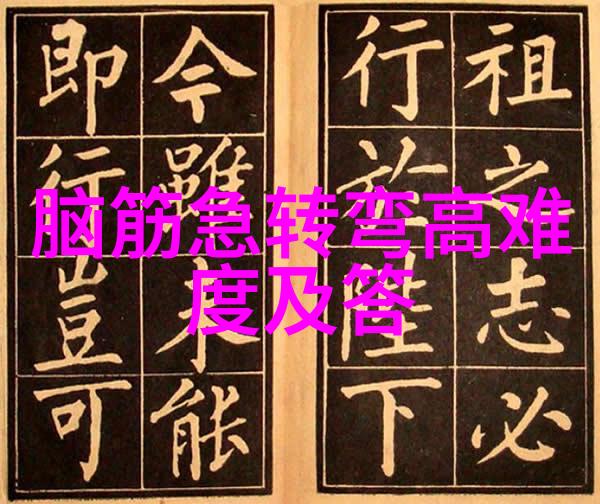 脑筋急转弯高难
度及答
祖之志必
行於陛下
今雖未能
即行豈可